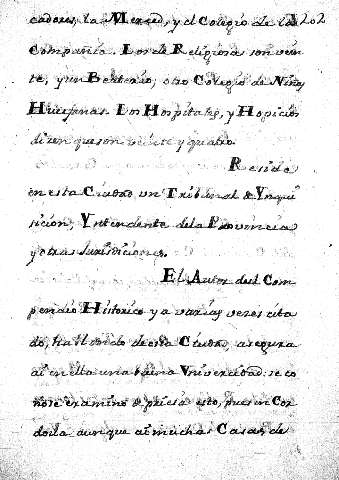 cadores, la Merced, y el Colegio de la 202
Compañia. Los de Religiosa son vein
te, y un Beaterio, otro Colegio de Niñas
Huerfanas. Los Hospitales, y Hospicios
dizen que son veinte y quatro.
Reside
en esta Ciudad un Tribunal de Ynqui
sicion, Yntendente de la Provincia
y otras Jurisdiciones.
El Autor del Com
pendio Historico y a varias vezes cita
do, hablando de esta Ciudad, asegura
ai en ella una buena Vniversidad: se co
noze examino de priesa esto, pues in Cor
doba aunque ai muchas Casas de